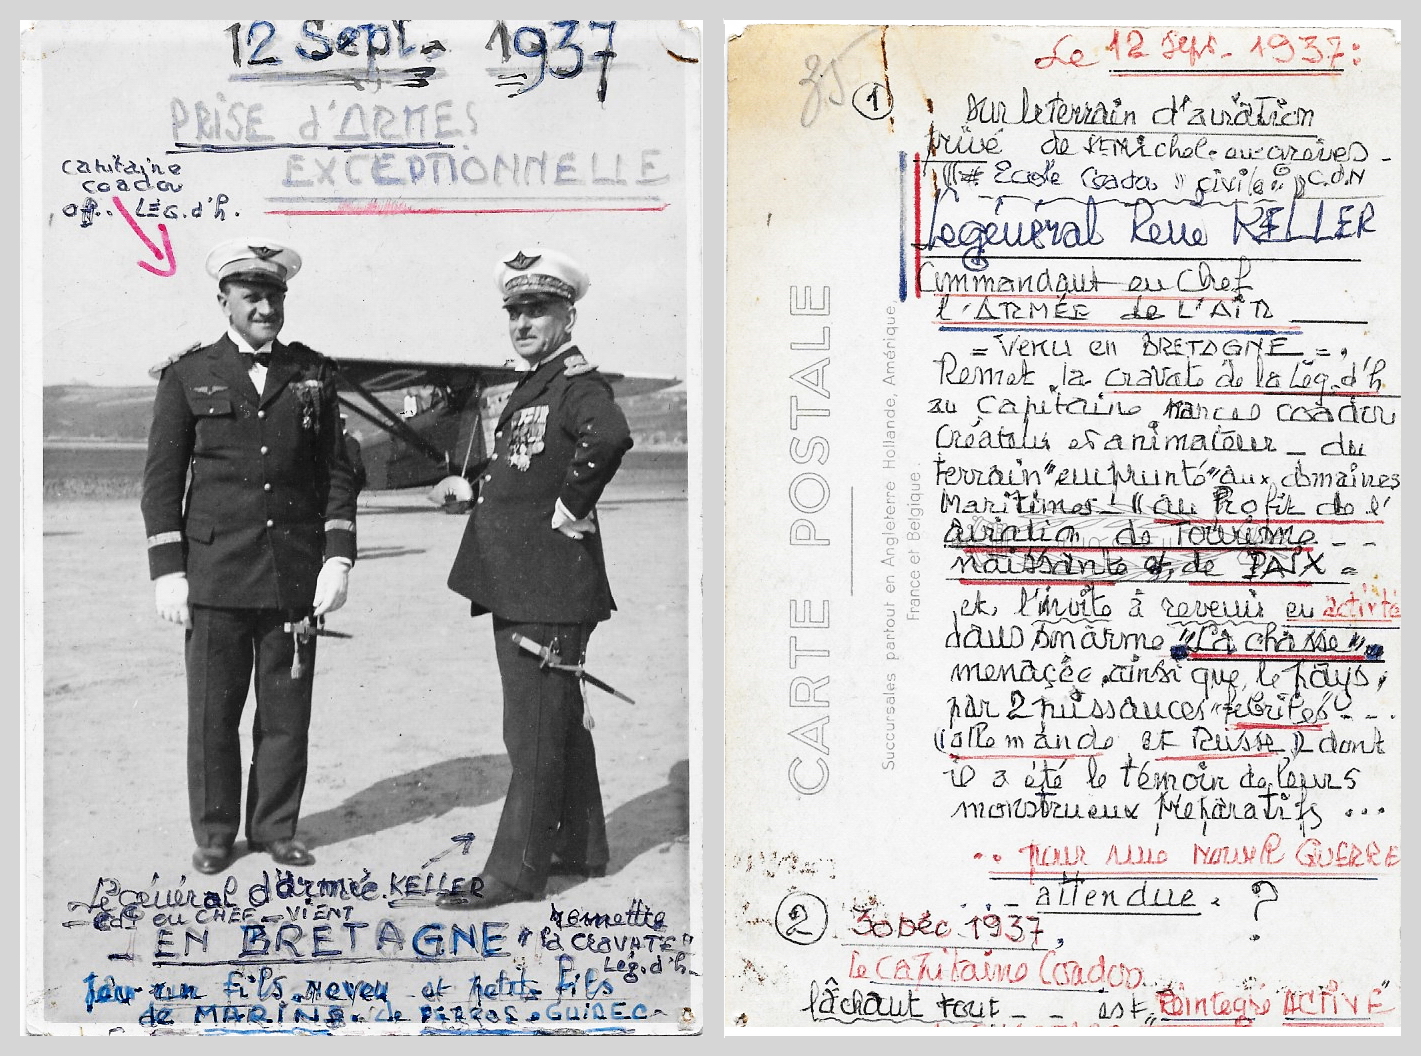 12 Sept. 1937
PRISE d'ARMES
EXCEPTIONNELLE
capitaine
coadou
off. LÉG. d'h.
Le général d'armée KELLER
Cdt en CHEF - VIENT
EN BRETAGNE
remettre
"la CRAVATE"
Lég. d'h.
pour un fils, neveu et petit fils
de MARINS. de PERROS-GUIREC
Le 12 Sept. 1937:
35
1
Sur le terrain d'aviation
privé de St Michel-en-grèves -
École Coadou "civile" C.D.N
Le général René KELLER
Commandant en Chef
l'ARMÉE de L'AIR
= Venu en BRETAGNE =,
Remet la cravate de la Lég. d'h
au Capitaine coadou
Créateur et animateur - du
terrain "emprunté" aux domaines
Maritimes - "au Profit de l'
aviation de Tourisme - -
naissante et de PAIX =
et l'invite à revenir en activité
dans son arme "La chasse"
menacée, ainsi que le pays,
par 2 puissances - - .
(allemande et Russe) dont
il a été le témoin de leurs
monstrueux préparatifs ...
.. pour une nouvelle GUERRE
. - attendue. ?
2
30 Déc. 1937,
Le Capitaine Coadou
lâchant tout - - est "Réintégré ACTIVE"
CARTE POSTALE
Succursales partout en Angleterre Hollande, Amérique,
France et Belgique.